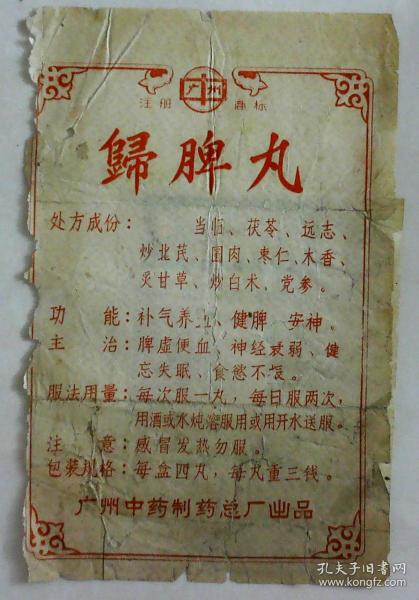 广州
注册 商标
歸脾丸
处方成份： 当归、茯苓、远志、
炒北芪、圆肉、枣仁、木香、
炙甘草、炒白术、党参。
功能：补气养、健脾 安神。
主治：脾虚便血、神经衰弱、健
忘失眠、食慾不振。
服法用量：每次服一丸，每日服两次，
用酒或水炖溶服用或用开水送服。
注意：感冒发热勿服。
包装规格：每盒四丸，每丸重三钱。
广州中药制药总厂出品
孔夫子旧书网
www.kongfz.com